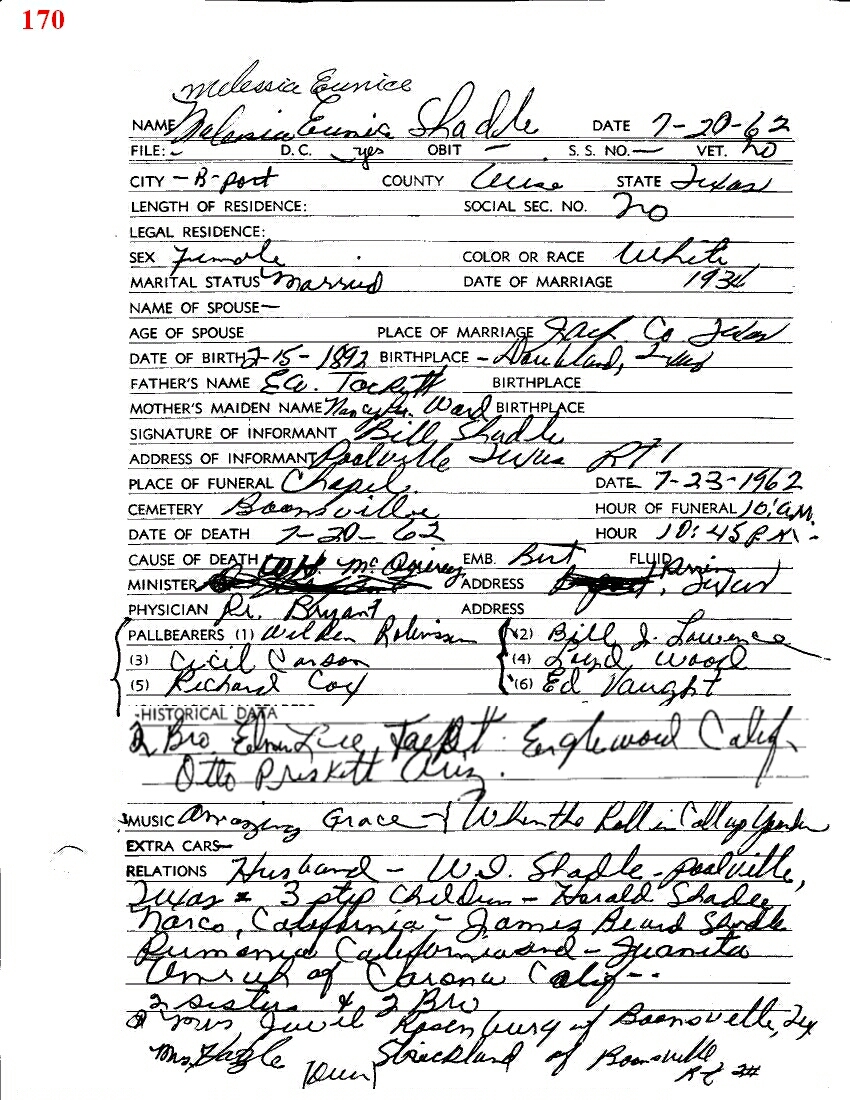 170
Melessia Eunice
NAME Melessia Eunice Shadle DATE 7-20-62
FILE: - D.C. yes OBIT - S. S. NO. — VET. no
CITY - B-port COUNTY Wise STATE Texas
LENGTH OF RESIDENCE: SOCIAL SEC. NO. no
LEGAL RESIDENCE:
SEX Female COLOR OR RACE White
MARITAL STATUS Married DATE OF MARRIAGE 1934
NAME OF SPOUSE —
AGE OF SPOUSE PLACE OF MARRIAGE Jack Co Texas
DATE OF BIRTH 2-15-1892 BIRTHPLACE - Texas
FATHER'S NAME Tackett BIRTHPLACE
MOTHER'S MAIDEN NAME Nancy Ward BIRTHPLACE
SIGNATURE OF INFORMANT Bill Shadle
ADDRESS OF INFORMANT Poolville Texas RT 1
PLACE OF FUNERAL Chapel DATE 7-23-1962
CEMETERY Boonsville HOUR OF FUNERAL 10: a.m.
DATE OF DEATH 7-20-62 HOUR 10:45 P.M.
CAUSE OF DEATH EMB. Burt FLUID
MINISTER W.H. ADDRESS , Texas
PHYSICIAN Dr. Bryant ADDRESS
PALLBEARERS (1) Robinson (2) Bill J. Lawrence
(3) Cecil Carson (4) Loyd Wood
(5) Richard Cox (6) Ed Vaught
HISTORICAL DATA
2 Bro. Elmer Lee Tackett Englewood Calif.
Otto Priskett Ariz.
MUSIC Amazing Grace - When the Roll is Called up Yonder
EXTRA CARS —
RELATIONS Husband - W.I. Shadle - Poolville,
Texas 3 step children - Harald Shadle
Narco, California - James Beard Shadle
California and - Juanita
Unruh of Carona Calif --
2 sisters & 2 Bro
Mrs Juvil Rosenburg of Boonsville, Tex
Mrs. Hazle Strickland of Boonsville